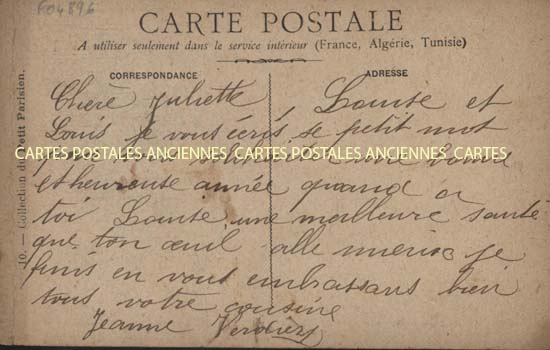 F04896
CARTE POSTALE
A utiliser seulement dans le service intérieur (France, Algérie, Tunisie)
CORRESPONDANCE
ADRESSE
10. — Collection du Petit Parisien.
Chère Juliette, Louise et
Louis je vous écris se petit mot
CARTES POSTALES ANCIENNES CARTES POSTALES ANCIENNES CARTES
bonne
et heureuse année quand a
toi Louise une meilleure santé
que ton œuil alle mieux je
finis en vous embrassans bien
tous votre cousine
Jeanne Verdiers